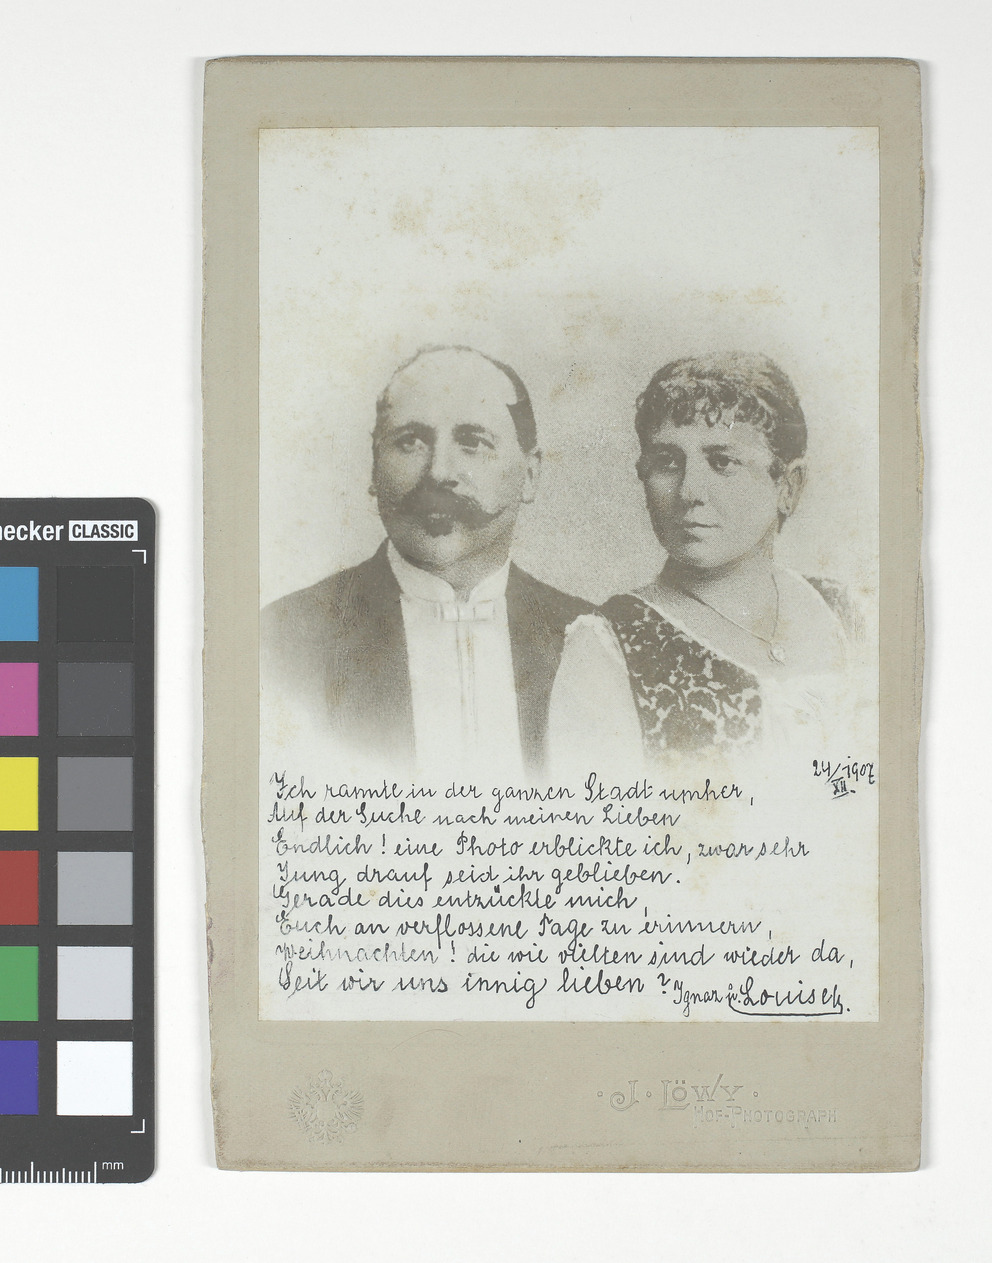 necker CLASSIC
24/XII. 1907
Ich rannte in der ganzen Stadt umher,
Auf der Suche nach meinen Lieben
Endlich! eine Photo erblickte ich, zwar sehr
Jung drauf seid ihr geblieben.
Gerade dies entzückte mich,
Euch an verflossene Tage zu erinnern,
Weihnachten! die wie vielten sind wieder da,
Seit wir uns innig lieben?
Ignaz Louise
· J · LÖWY ·
HOF-PHOTOGRAPH
mm